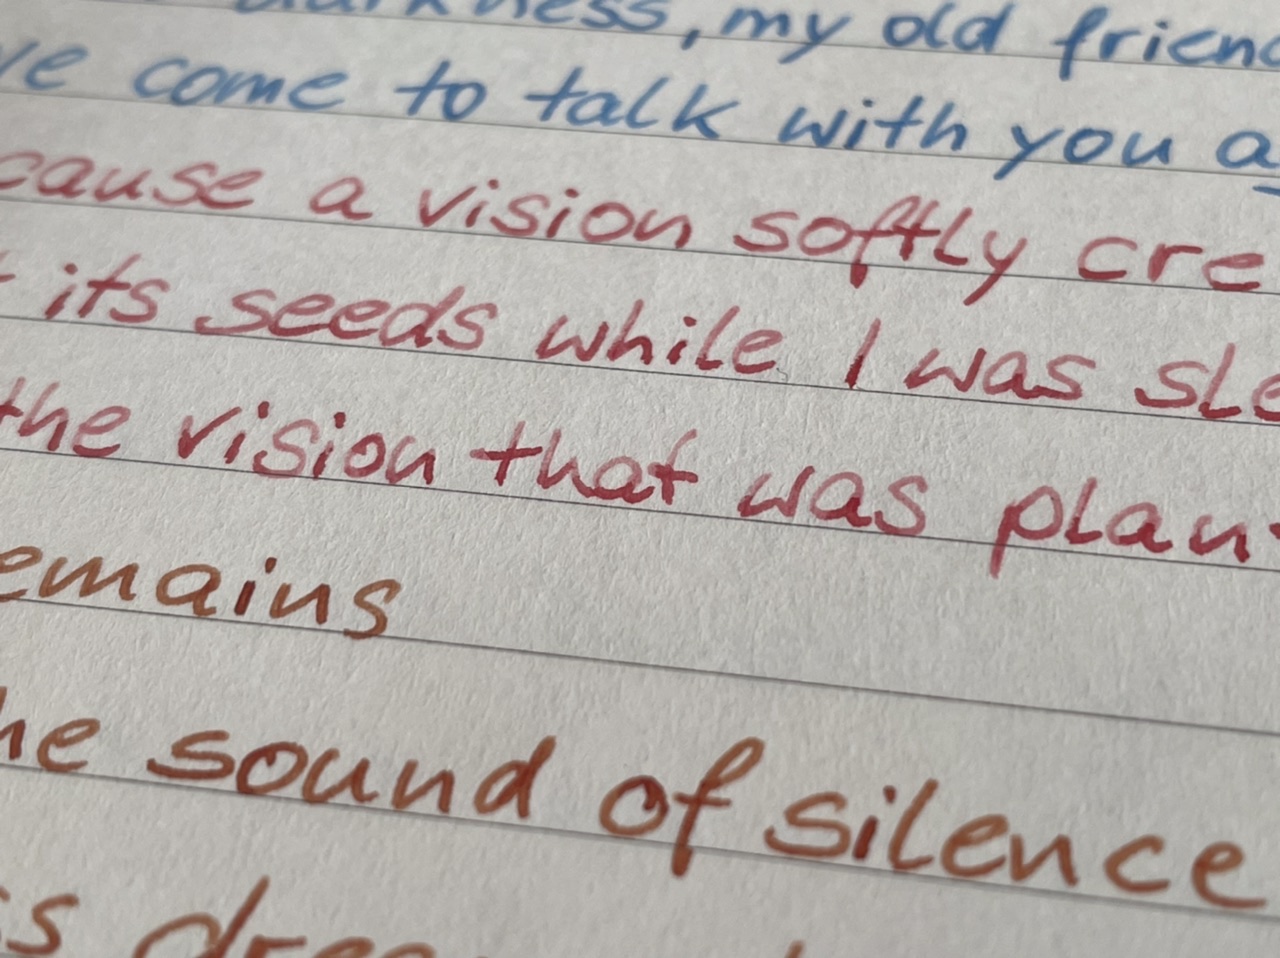 darkness, my old friend
ve come to talk with you a
cause a vision softly cre
its seeds while I was sle
the vision that was plan
emains
he sound of silence
s